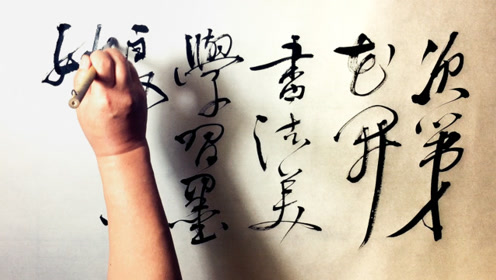 次第
花開
書法美
學習墨